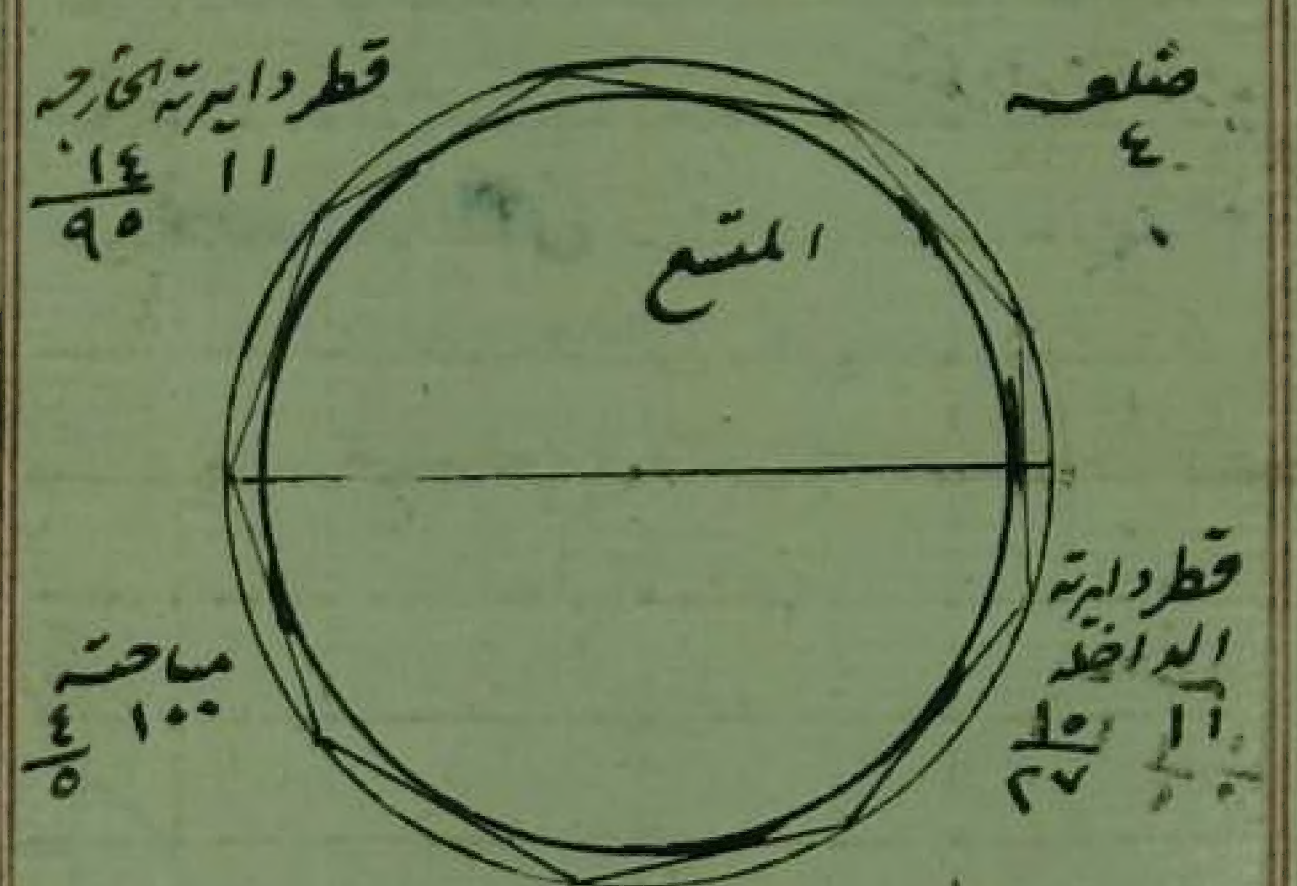 ضلعه
٤
قطر دايرته الخارجه
١١ ١٤/٩٥
المتسع
قطر دايرته
الداخله
١١ ١٠/٢٧
مساحته
١٠٠ ٤/٥